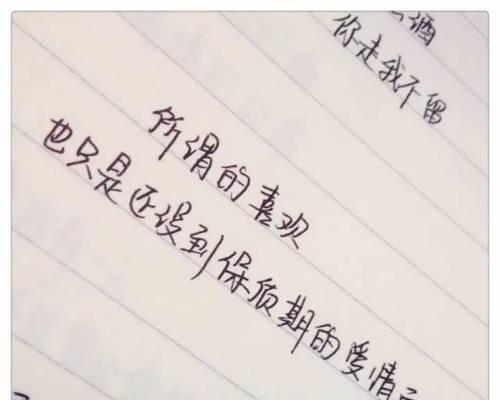 酒
你走我不留
所谓的喜欢
也只是还没到保质期的爱情